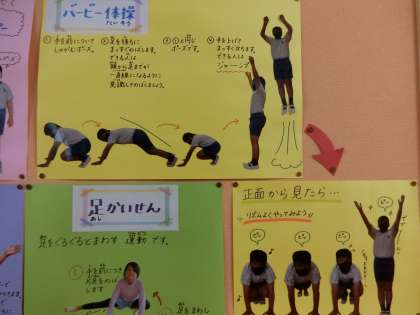 バービー体操
たいそう
① 手を前について
しゃがむポーズ。
② 足を後ろに
まっすぐのばします。
できる人は
頭から足までが
一直線になるように
意識してやりましょう。
③ ①と同じ
ポーズです。
④ 手を上げて
まっすぐ立ちます。
できる人は
ジャーンプ
足かいせん
あし
足をぐるぐるとまわす 運動 です。
① 手を前につき
足をまわし
正面から見たら…
リズムよくやってみよう!!
ピッ
ピッ
ピッ
ピッ